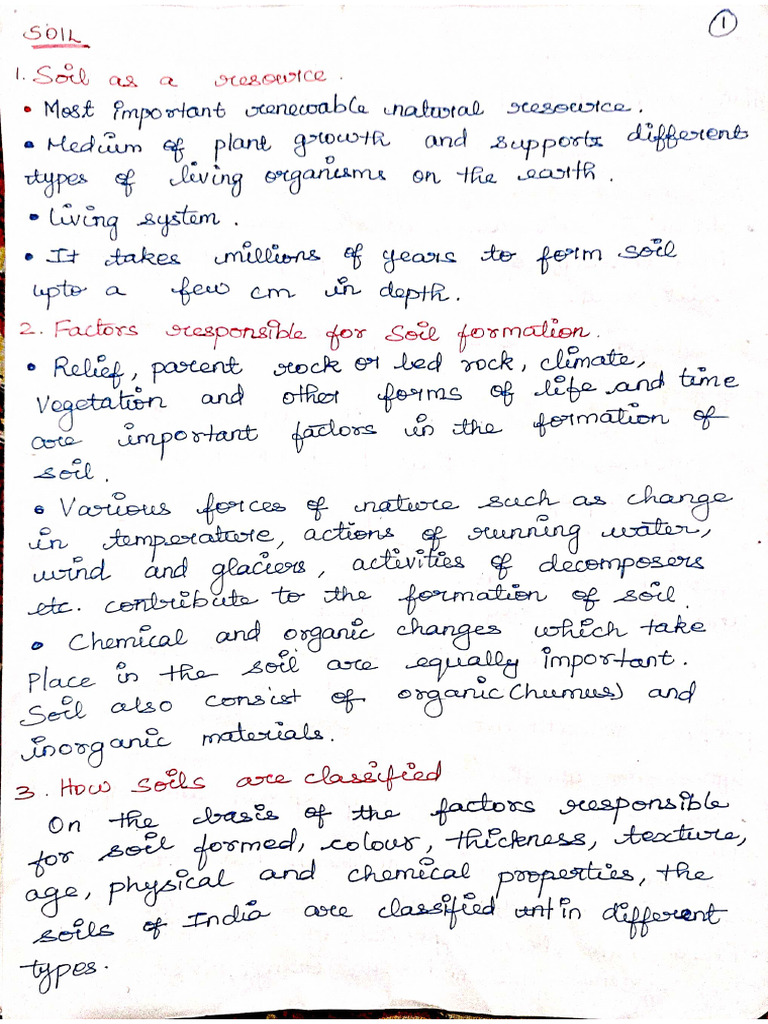 1
SOIL
1. Soil as a resource.
• Most important renewable natural resource.
• Medium of plant growth and supports different
types of living organisms on the earth.
• Living system.
• It takes millions of years to form soil
upto a few cm in depth.
2. Factors responsible for soil formation.
• Relief, parent rock or bed rock, climate,
Vegetation and other forms of life and time
are important factors in the formation of
soil.
• Various forces of nature such as change
in temperature, actions of running water,
wind and glaciers, activities of decomposers
etc. contribute to the formation of soil.
• Chemical and organic changes which take
Place in the soil are equally important.
Soil also consist of organic (humus) and
inorganic materials.
3. How soils are classified
On the basis of the factors responsible
for soil formed, colour, thickness, texture,
age, physical and chemical properties, the
soils of India are classified in different
types.